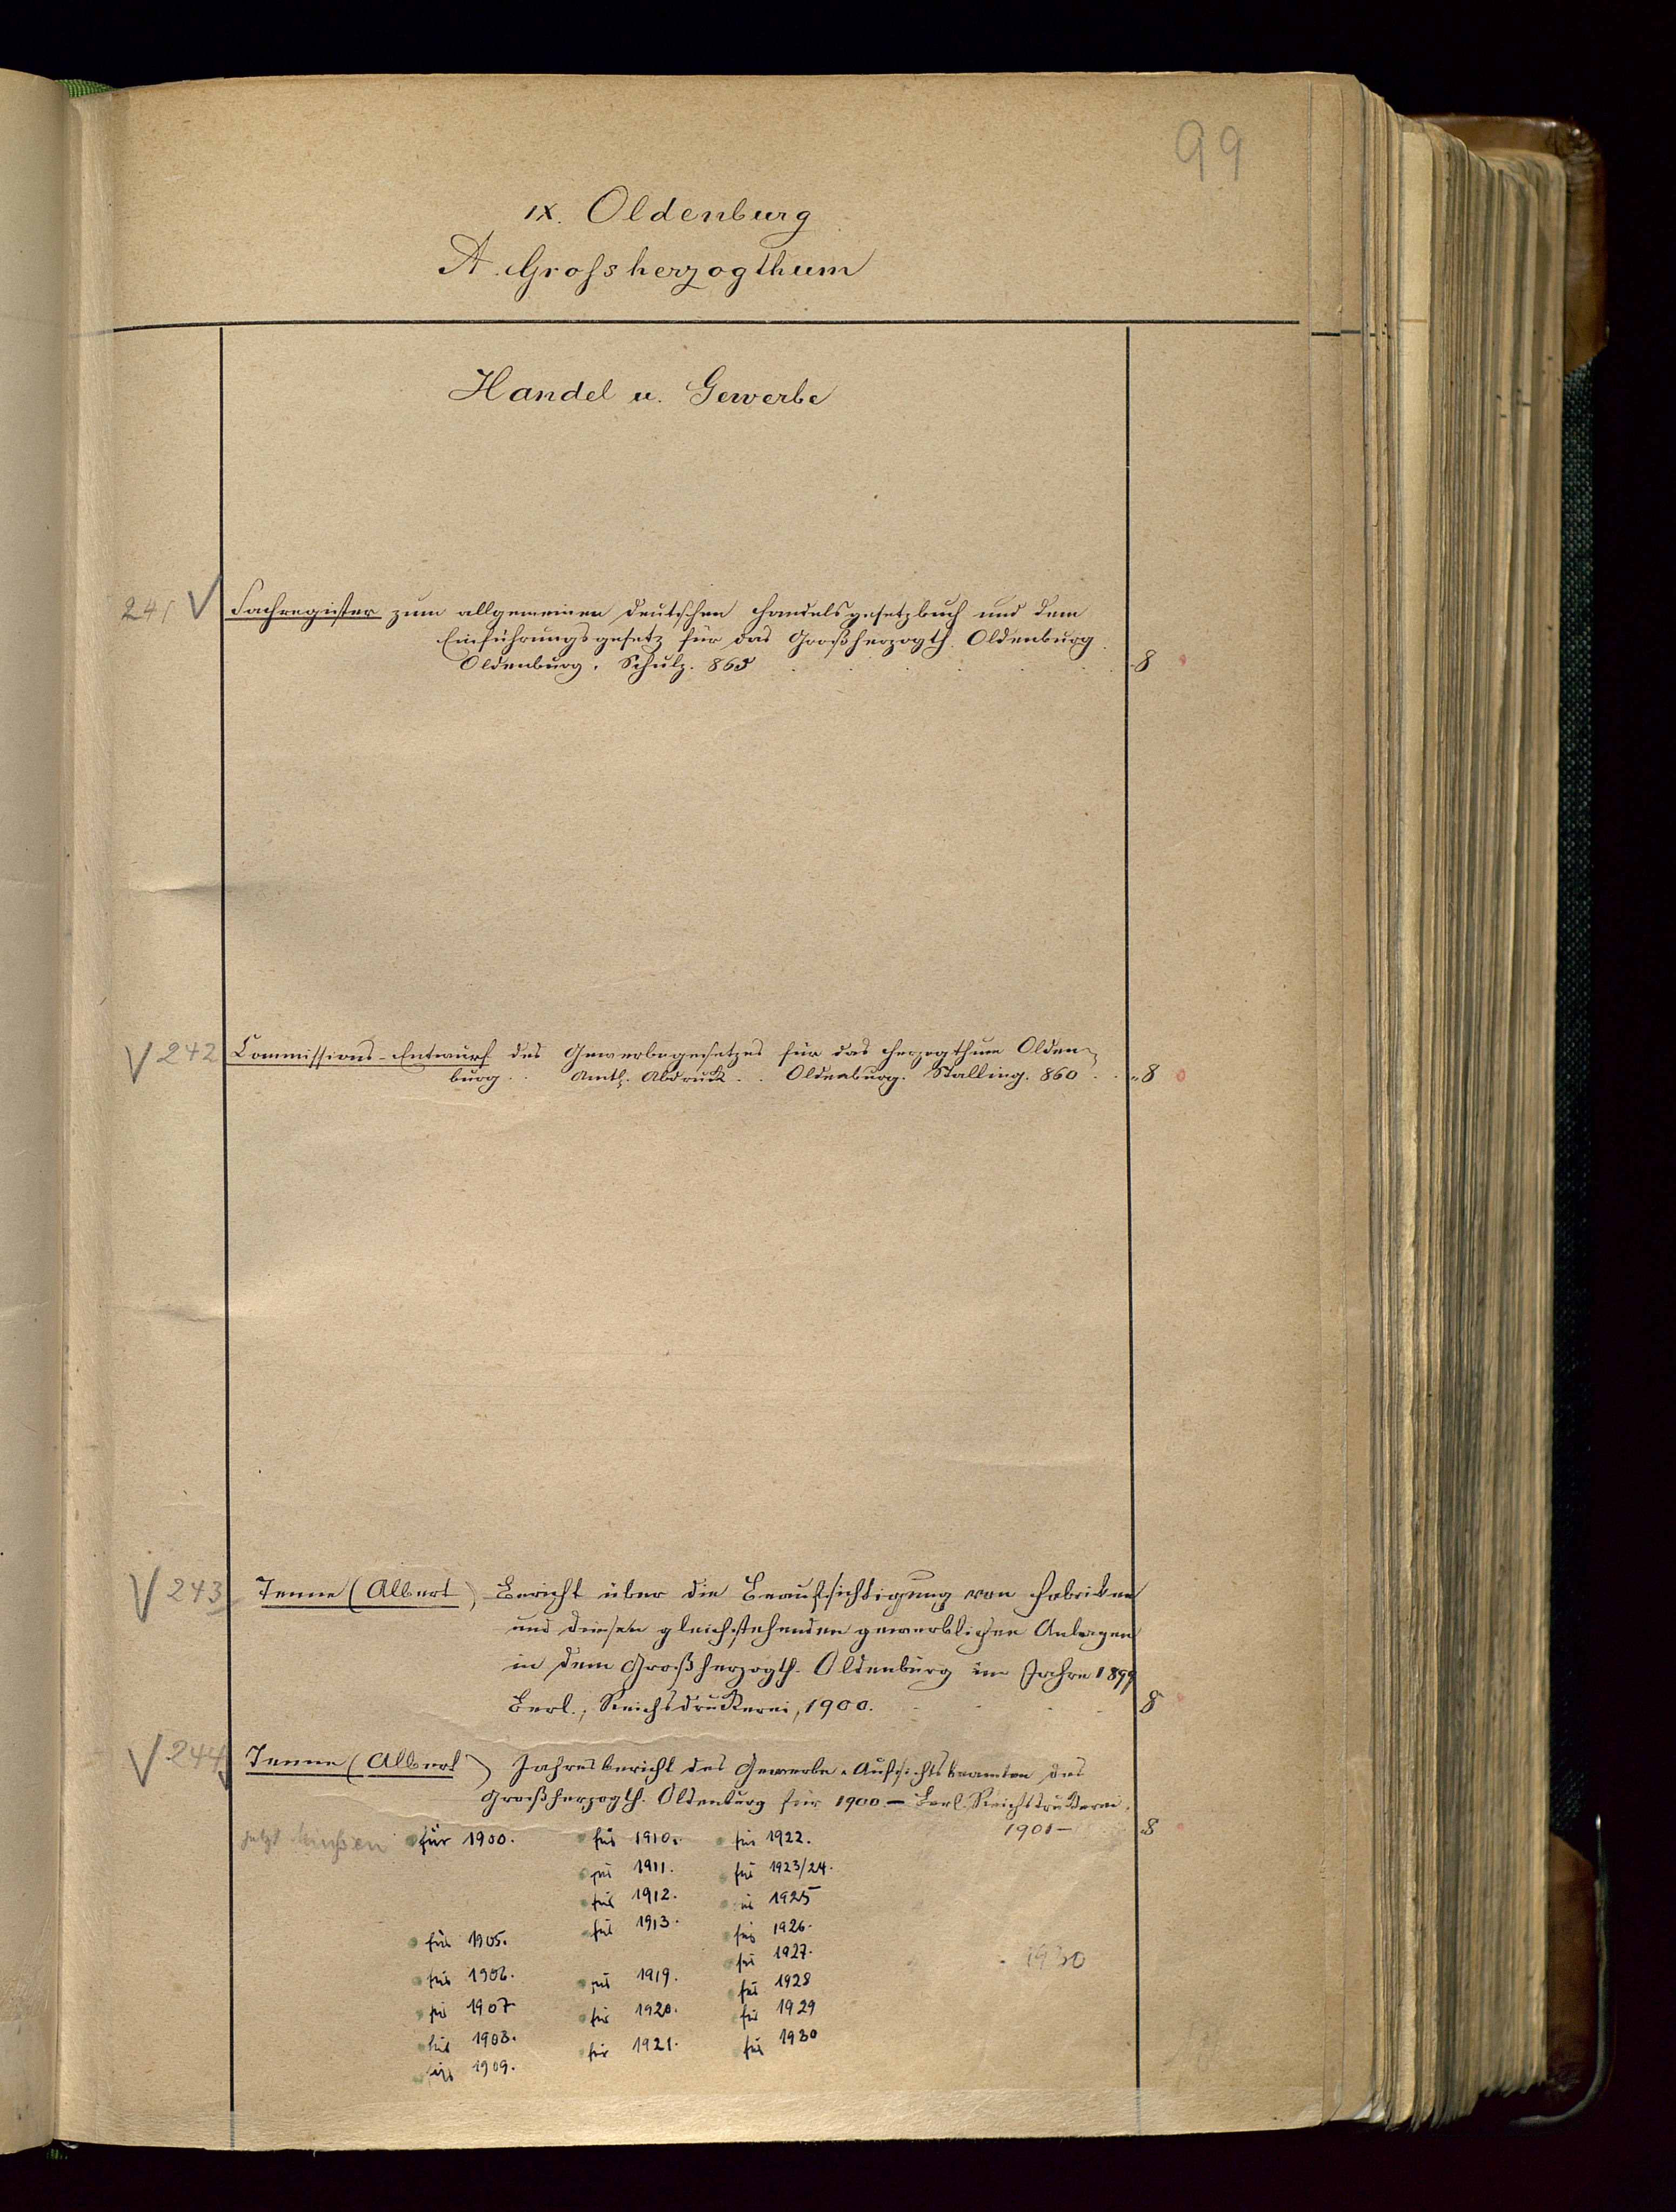 99
IX. Oldenburg
A. Grossherzogthum
Handel u. Gewerbe
241 Sachregister zum allgemeinen deutschen Handelsgesetzbuch und dem
Einführungsgesetz für das Großherzogth. Oldenburg.
Oldenburg. Schulz. 865 8
242 Commissions-Entwurf des Gewerbegesetzes für das Herzogthum Olden-
burg. Amtl. Abdruck. Oldenburg. Stalling. 860 8
243 Tenne (Albert), Bericht über die Beaufsichtigung von Fabriken
und diesen gleichstehenden gewerblichen Anlagen
in dem Großherzogth. Oldenburg im Jahre 1899
Berl., Reichsdruckerei, 1900. 8
244 Tenne (Albert) Jahresbericht des Gewerbe-Aufsichtsbeamten des
Großherzogth. Oldenburg für 1900 — Berl. Reichsdruckerei.
1901 — 8
jetzt für 1900. für 1910. für 1922.
für 1911. für 1923/24.
für 1912. für 1925
für 1913. für 1926.
für 1905. für 1927.
1930
für 1906. für 1919. für 1928
für 1907 für 1920. für 1929
für 1908. für 1921. für 1930
für 1909.